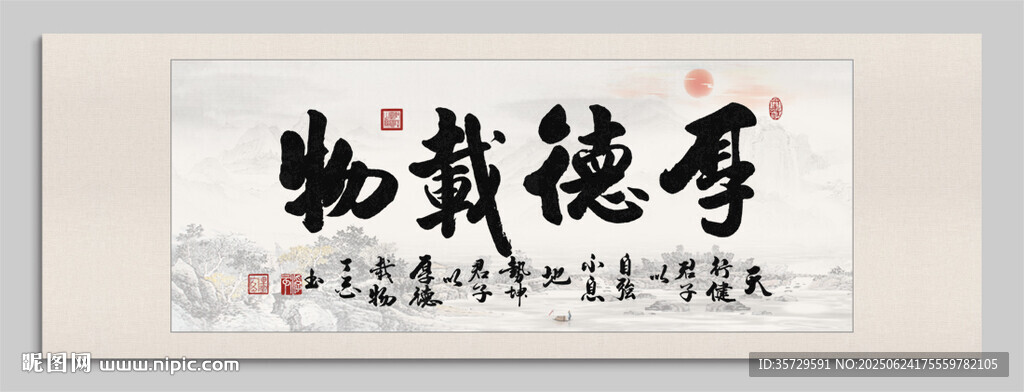 厚德載物
天行健君子以自強不息地勢坤君子以厚德載物
昵图网 www.nipic.com
ID:35729591 NO:20250624175559782105